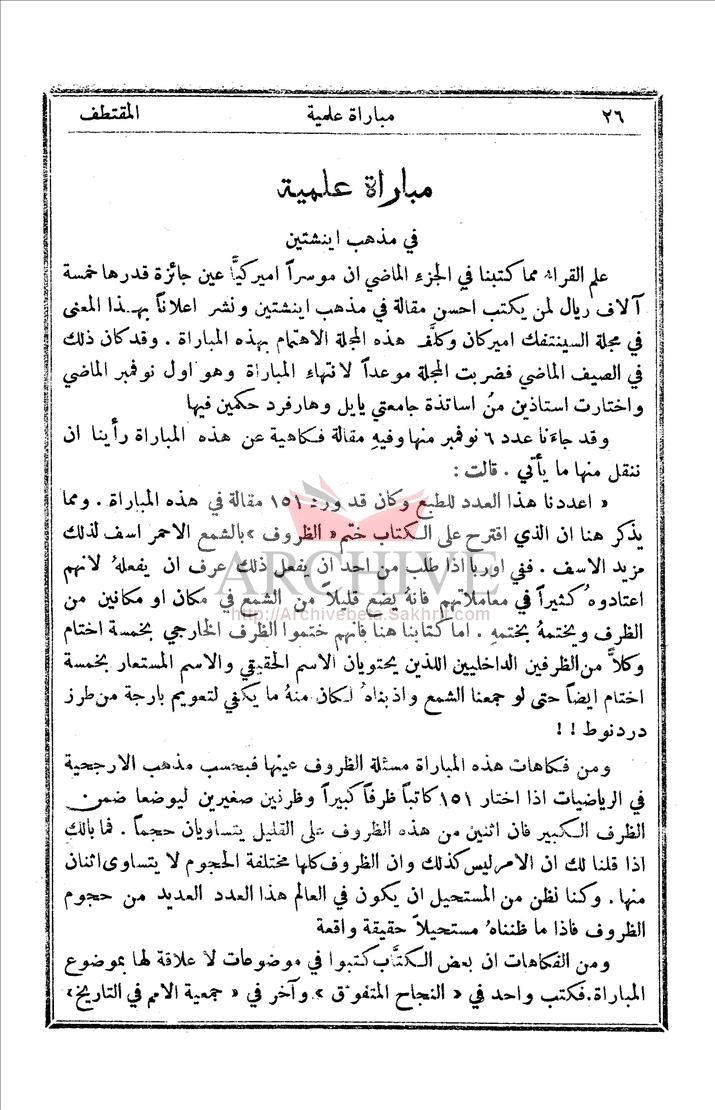 ٢٦ مباراة علمية المقتطف
مباراة علمية
في مذهب اينشتين
علم القراء مما كتبنا في الجزء الماضي ان موسراً اميركيًّا عين جائزة قدرها خمسة
آلاف ريال لمن يكتب احسن مقالة في مذهب اينشتين ونشر اعلاناً بهذا المعنى
في مجلة السينتفك اميركان وكلَّف هذه المجلة الاهتمام بهذه المباراة . وقد كان ذلك
في الصيف الماضي فضربت المجلة موعداً لانتهاء المباراة وهو اول نوفمبر الماضي
واختارت استاذين من اساتذة جامعتي يايل وهارفرد حكمين فيها
وقد جاءنا عدد ٦ نوفمبر منها وفيهِ مقالة فكاهية عن هذه المباراة رأينا ان
ننقل منها ما يأتي . قالت :
« اعددنا هذا العدد للطبع وكان قد ورد ١٥١ مقالة في هذه المباراة . ومما
يذكر هنا ان الذي اقترح على الكتاب ختم « الظروف » بالشمع الاحمر اسف لذلك
مزيد الاسف . ففي اوربا اذا طلب من احد ان يفعل ذلك عرف ان يفعلهُ لانهم
اعتادوهُ كثيراً في معاملاتهم فانهُ يضع قليلاً من الشمع في مكان او مكانين من
الظرف ويختمهُ بختمهِ . اما كتابنا هنا فانهم ختموا الظرف الخارجي بخمسة اختام
وكلاًّ من الظرفين الداخليين اللذين يحتويان الاسم الحقيقي والاسم المستعار بخمسة
اختام ايضاً حتى لو جمعنا الشمع واذبناهُ لكان منهُ ما يكفي لتعويم بارجة من طرز
دردنوط ! !
ومن فكاهات هذه المباراة مسئلة الظروف عينها فبحسب مذهب الارجحية
في الرياضيات اذا اختار ١٥١ كاتباً ظرفاً كبيراً وظرفين صغيرين ليوضعا ضمن
الظرف الكبير فان اثنين من هذه الظروف على القليل يتساويان حجماً . فما بالك
اذا قلنا لك ان الامر ليس كذلك وان الظروف كلها مختلفة الحجوم لا يتساوى اثنان
منها . وكنا نظن من المستحيل ان يكون في العالم هذا العدد العديد من حجوم
الظروف فاذا ما ظنناهُ مستحيلاً حقيقة واقعة
ومن الفكاهات ان بعض الكتَّاب كتبوا في موضوعات لا علاقة لها بموضوع
المباراة . فكتب واحد في « النجاح المتفوق » وآخر في « جمعية الامم في التاريخ »
ARCHIVE
http://Archivebeta.Sakhrit.com